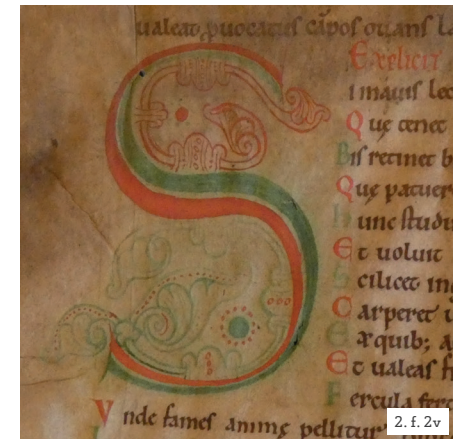 ualeat, ꝓuocatus cāpos
Explicit
imauis lec
Que tenet
Bis retinet b
S
Que patuer
hunc studiu
Et uoluit
Scilicet in
Carperet
Æ quib; a
Et ualeas f
Fercula ferc
Vnde fames animę pellitur
2. f. 2v